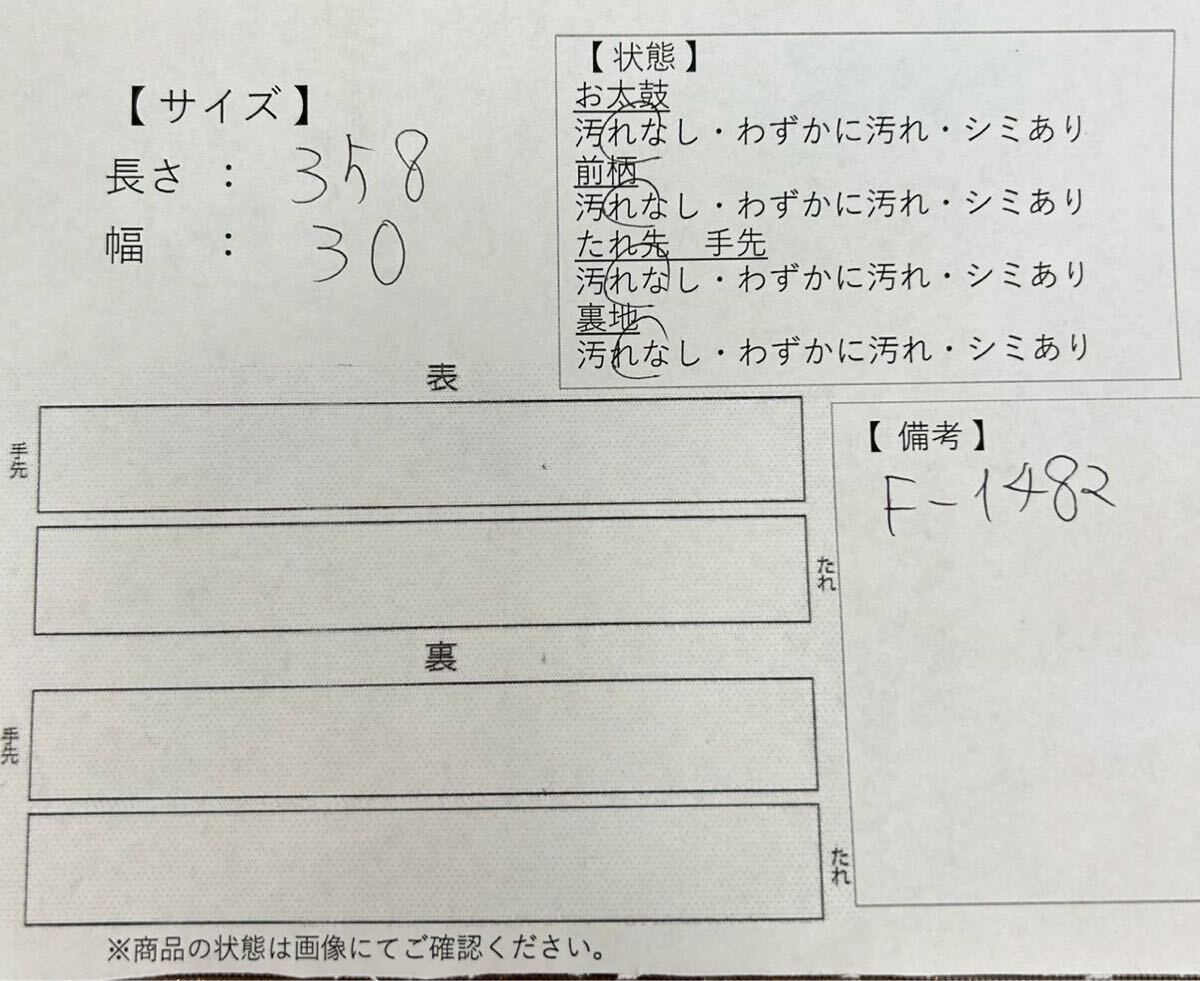 【 サイズ 】
長さ ： 358
幅 ： 30
【 状態 】
お太鼓
汚れなし・わずかに汚れ・シミあり
前柄
汚れなし・わずかに汚れ・シミあり
たれ先 手先
汚れなし・わずかに汚れ・シミあり
裏地
汚れなし・わずかに汚れ・シミあり
表
手先
たれ
裏
手先
たれ
【 備考 】
F-1482
※商品の状態は画像にてご確認ください。